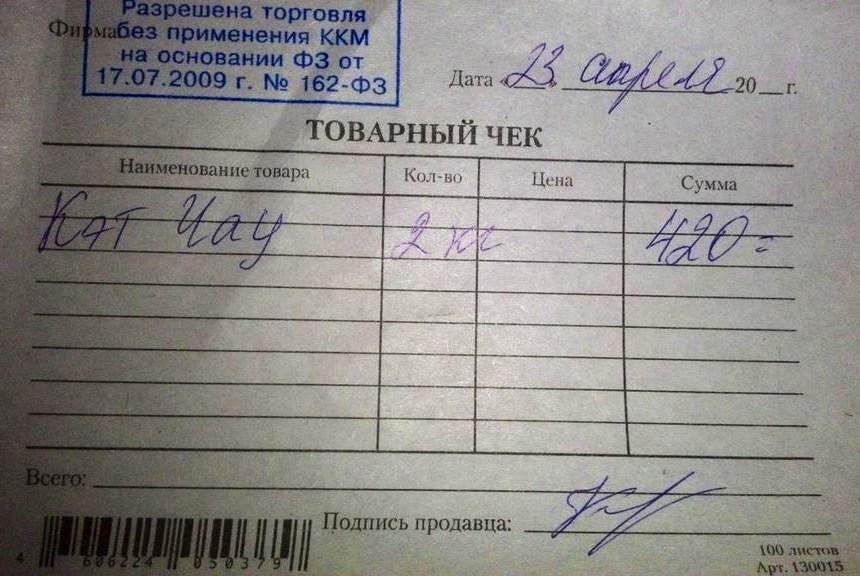 Разрешена торговля
Фирма без применения ККМ
на основании ФЗ от
17.07.2009 г. № 162-ФЗ
Дата «23» апреля 20__г.
ТОВАРНЫЙ ЧЕК
Наименование товара Кол-во Цена Сумма
Кэт Чау 2 кг 420=
Всего:
Подпись продавца:
4 606224 050379
100 листов
Арт. 130015